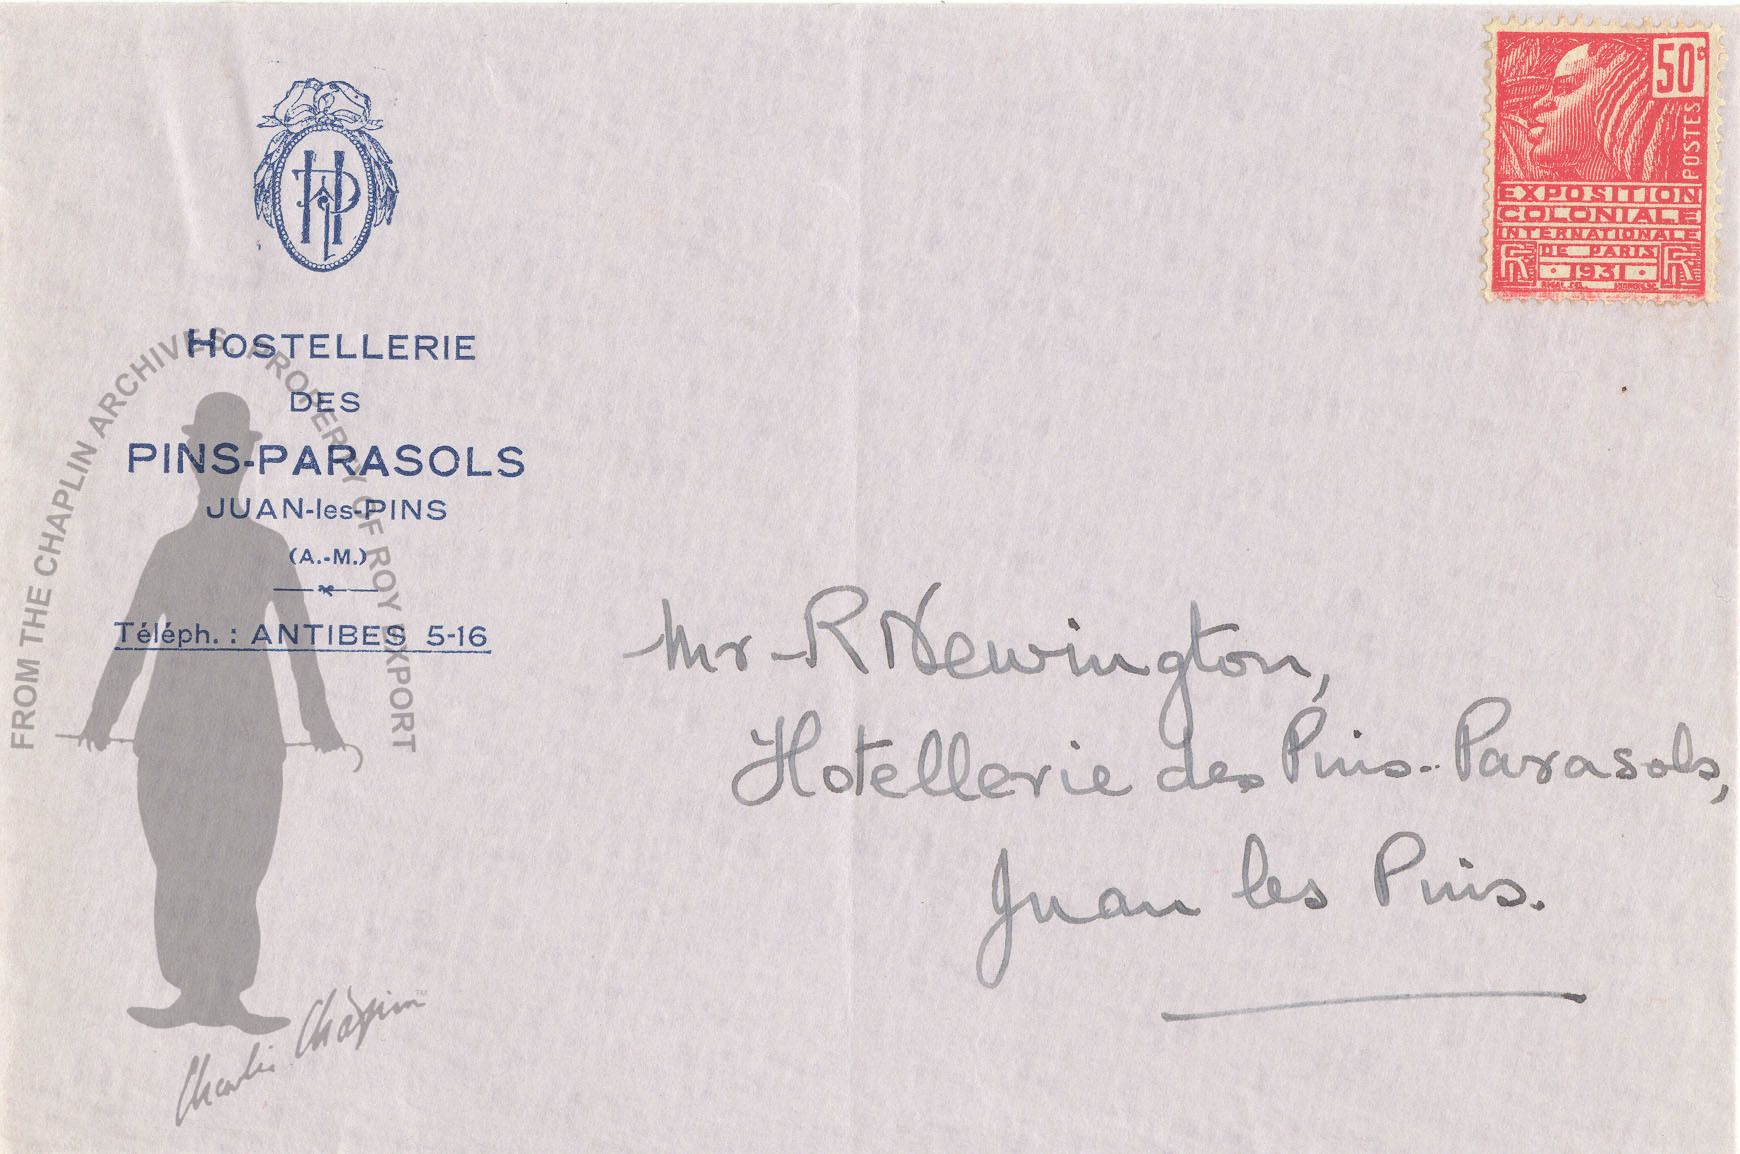 HP
HOSTELLERIE
DES
PINS-PARASOLS
JUAN-les-PINS
(A.-M.)
Téléph. : ANTIBES 5-16
50c
POSTES
EXPOSITION
COLONIALE
INTERNATIONALE
DE PARIS
RF · 1931 · RF
Mr R Newington,
Hotellerie des Pins-Parasols,
Juan les Pins.
FROM THE CHAPLIN ARCHIVES. PROPERTY OF ROY EXPORT
Charlie Chaplin™